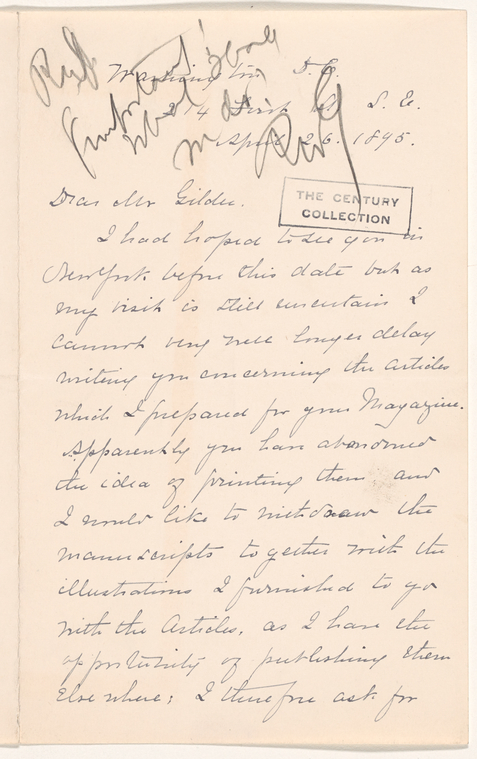 Important!
Washington D.C.
214 First St S. E.
April 26. 1895.
Dear Mr Gilder.
THE CENTURY
COLLECTION
I had hoped to see you in
New York before this date but as
my visit is still uncertain I
cannot very well longer delay
writing you concerning the articles
which I prepared for your Magazine.
Apparently you have abandoned
the idea of printing them and
I would like to withdraw the
manuscripts together with the
illustrations I furnished to go
with the Articles, as I have the
opportunity of publishing them
elsewhere; I therefore ask for